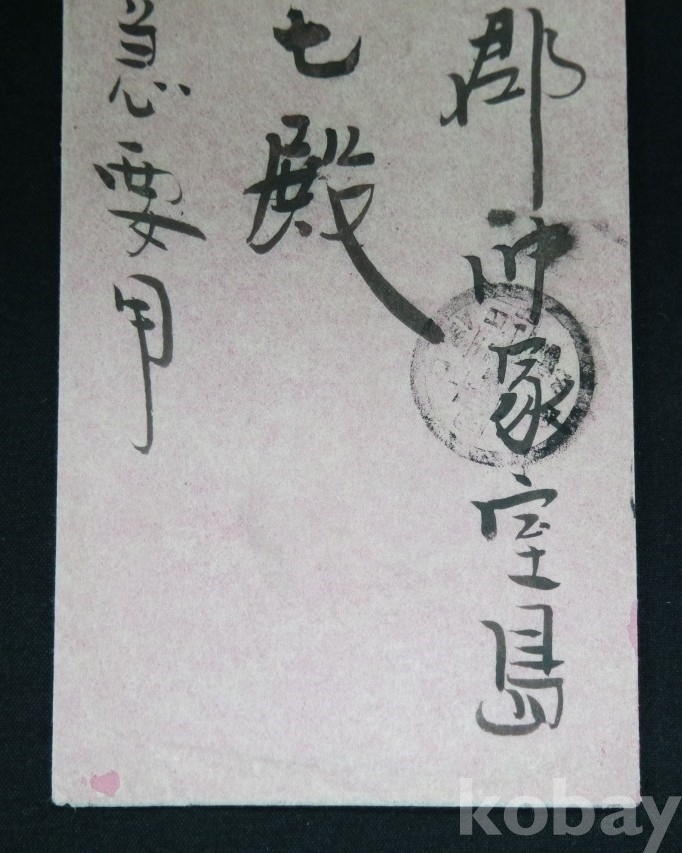 郡沖家室島
七殿
急要用
kobay